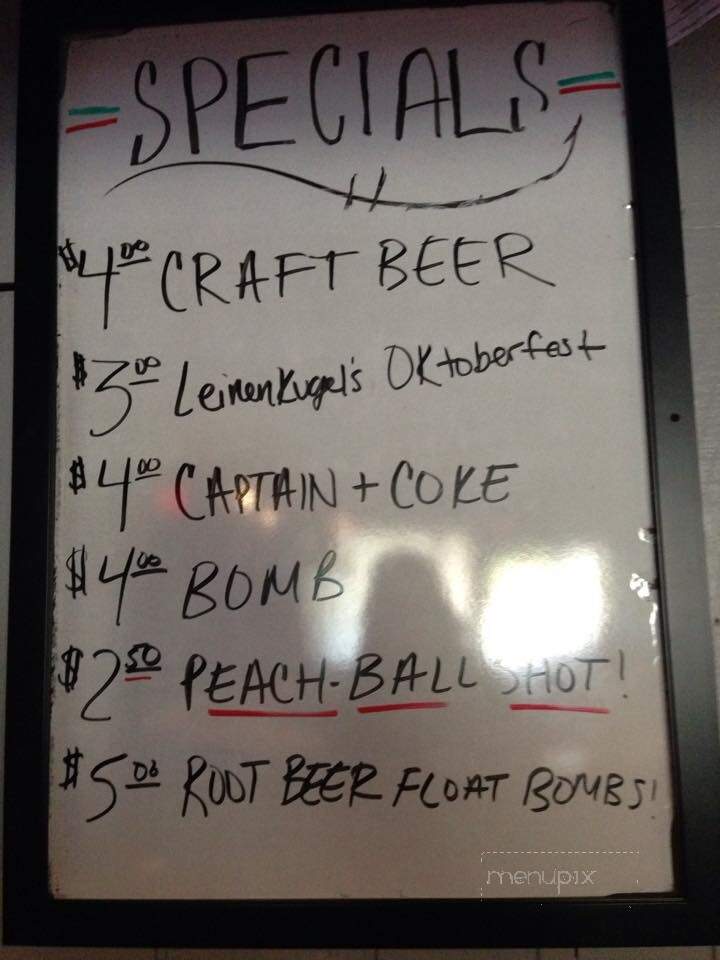 SPECIALS
$4.00 CRAFT BEER
$3.00 Leinenkugel's Oktoberfest
$4.00 CAPTAIN + COKE
$4.00 BOMB
$2.50 PEACH-BALL SHOT!
$5.00 ROOT BEER FLOAT BOMBS!
menupix